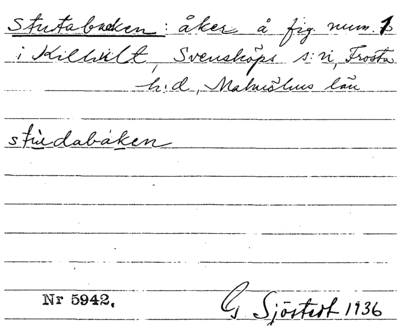 Stutabacken: åker å fig. num. 1
i Killhult, Svensköps s:n, Frosta
h:d, Malmöhus län
stùdabáken
Nr 5942.
G Sjöstedt 1936